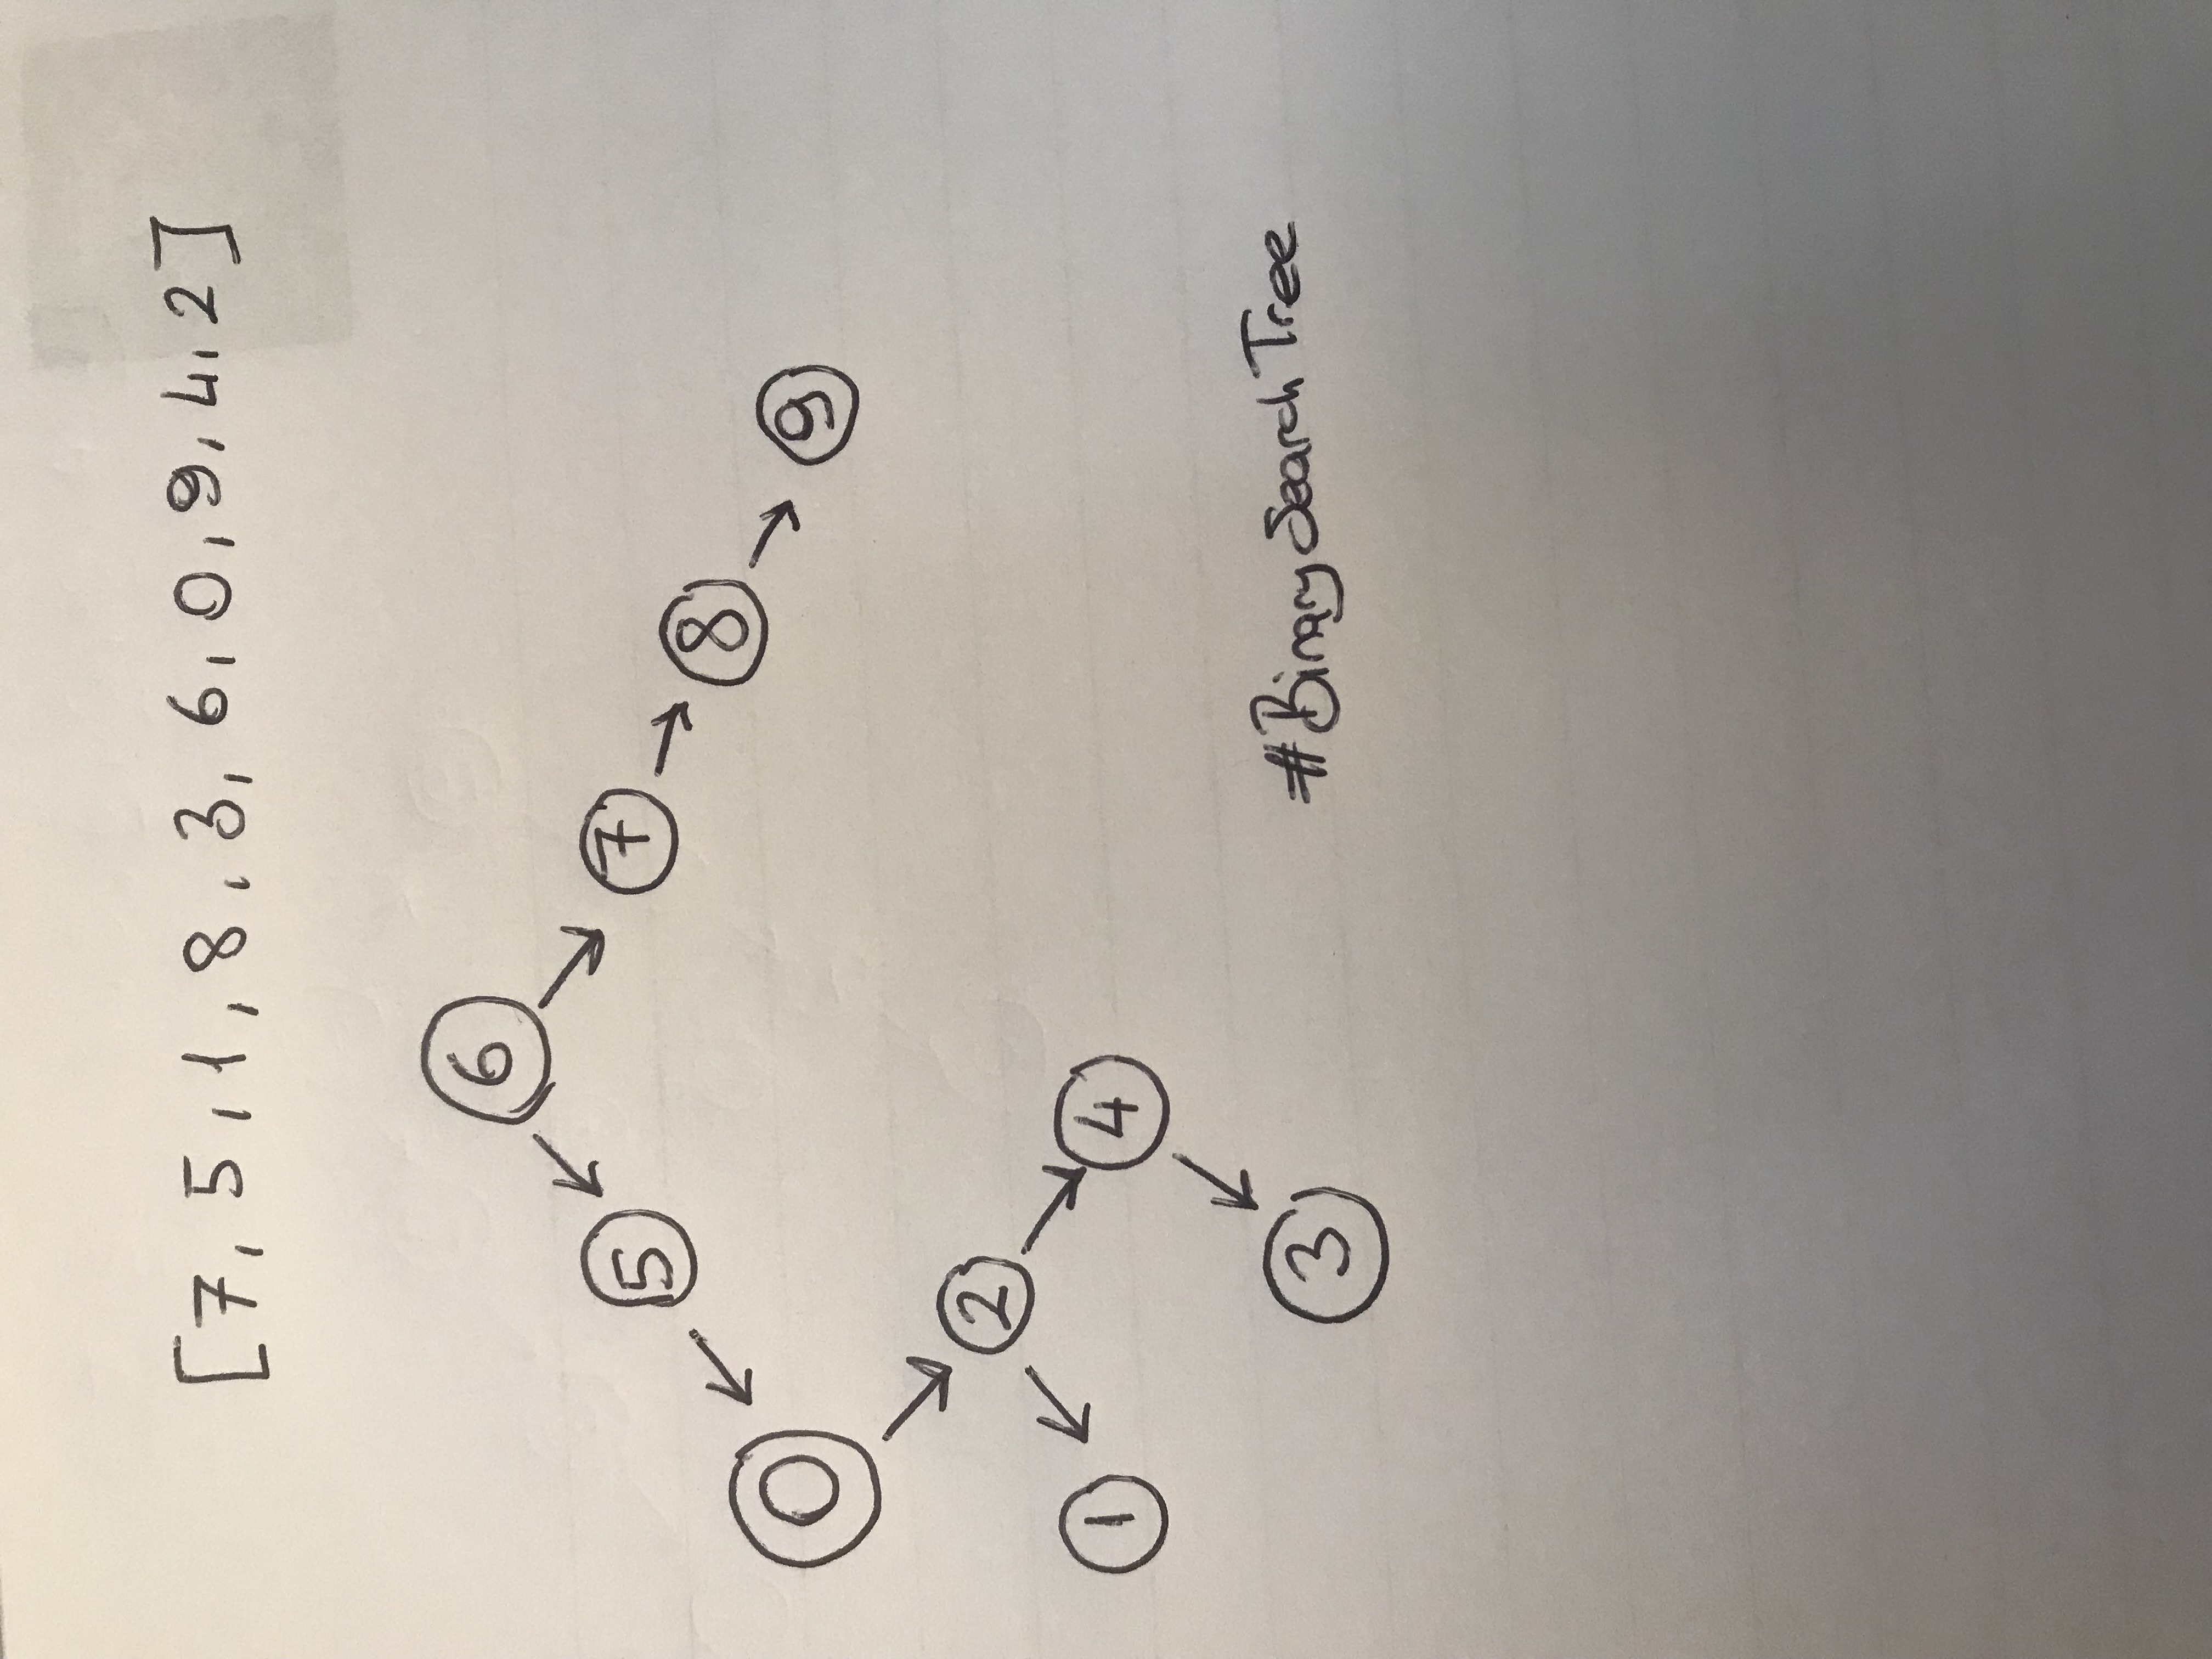 [7, 5, 1, 8, 3, 6, 0, 9, 4, 2]
6
5
7
8
0
9
2
1
4
3
#BinarySearchTree